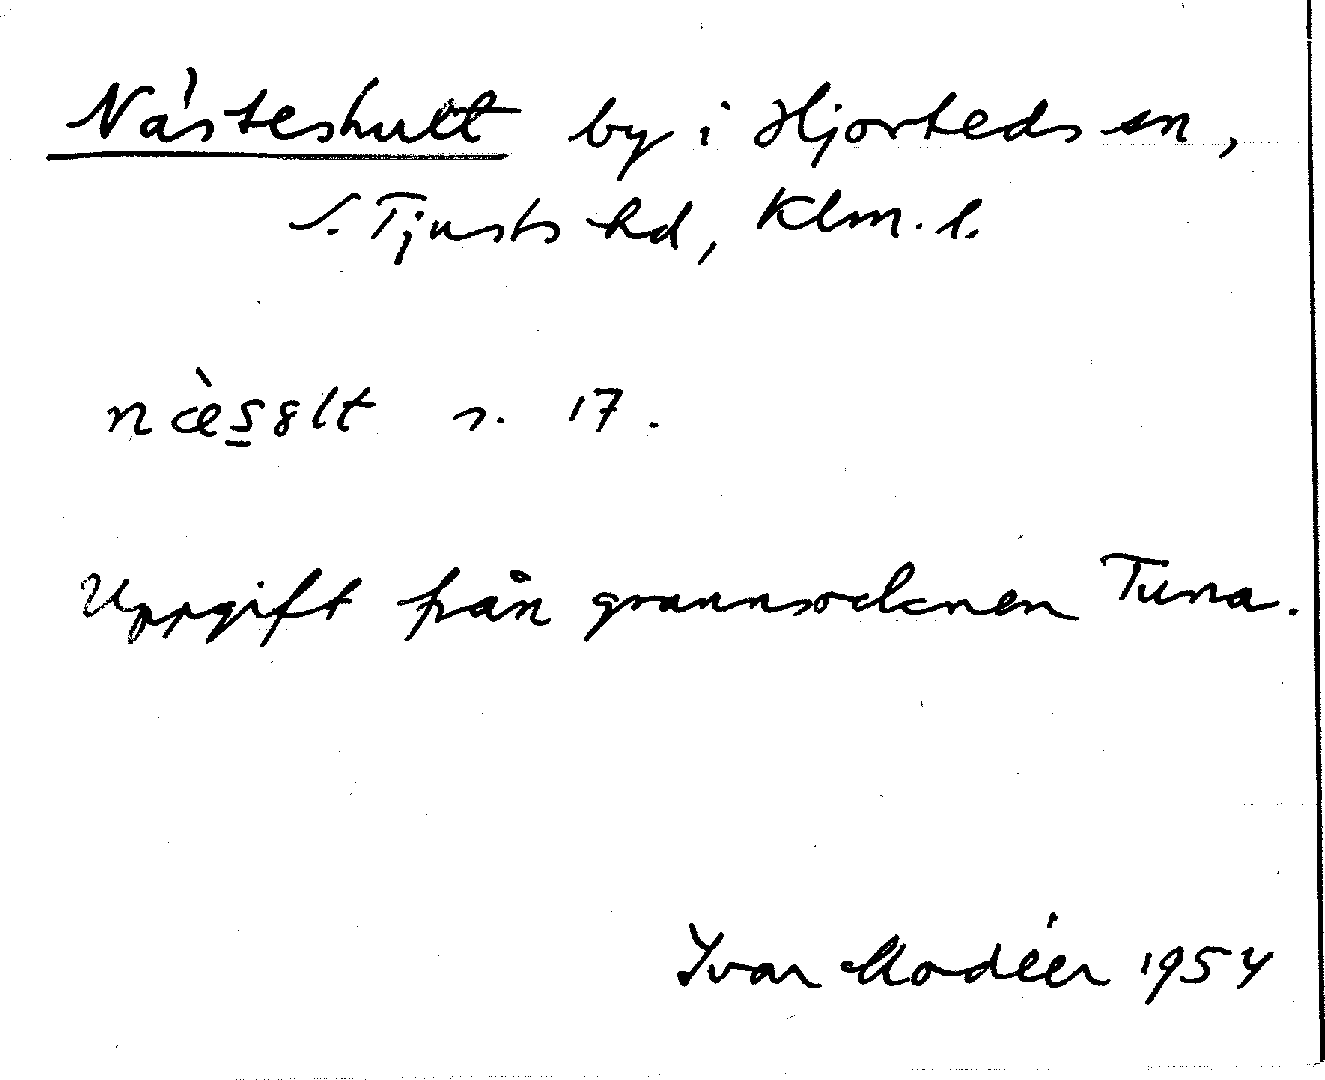 Nåsteshult by i Hjorteds sn,
S. Tjusts hd, Klm. l.
næ̀s̲8lt s. 17.
Uppgift från grannsocknen Tuna.
Ivar Modéer 1954